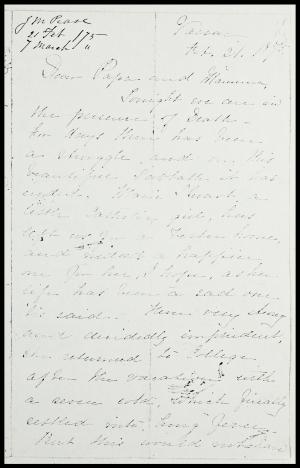 J M Pease
21 Feb '75
7 March "
Vassar
Feb. 21. 1875
Dear Papa and Mamma,
Tonight we are in
the presence of Death -
two days there has been
a struggle and on this
beautiful Sabbath it has
ended. Marie a
little Catholic girl, has
left us for a better home,
and indeed a happier
one for her, I hope, as her
life has been a sad one
it is said. very
and decidedly imprudent,
she returned to College
after the vacation with
a severe cold, which finally
settled into Lung Fever.
But this would not have